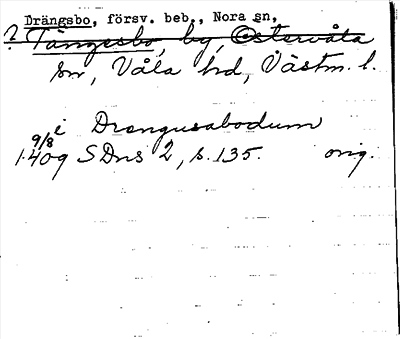 Drängsbo, försv. beb., Nora sn,
? Tängesbo, by, Östervåla
sn, Våla hd, Västm. l.
i Drængusabodum
1409 9/8 SDns 2, s. 135. orig.